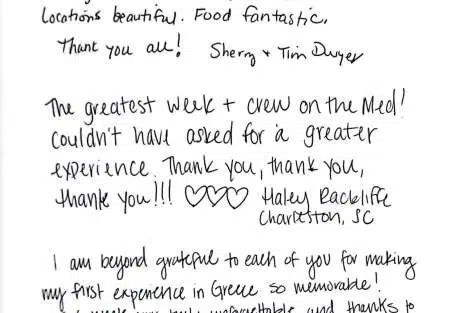 Locations beautiful. Food fantastic.
Thank you all! Sherry + Tim Dwyer
The greatest week + crew on the Med!
Couldn't have asked for a greater
experience. Thank you, thank you,
thank you!!! ♡♡♡ Haley Rackliffe
Charleston, SC
I am beyond grateful to each of you for making
my first experience in Greece so memorable!
week was truly unforgettable and thanks to